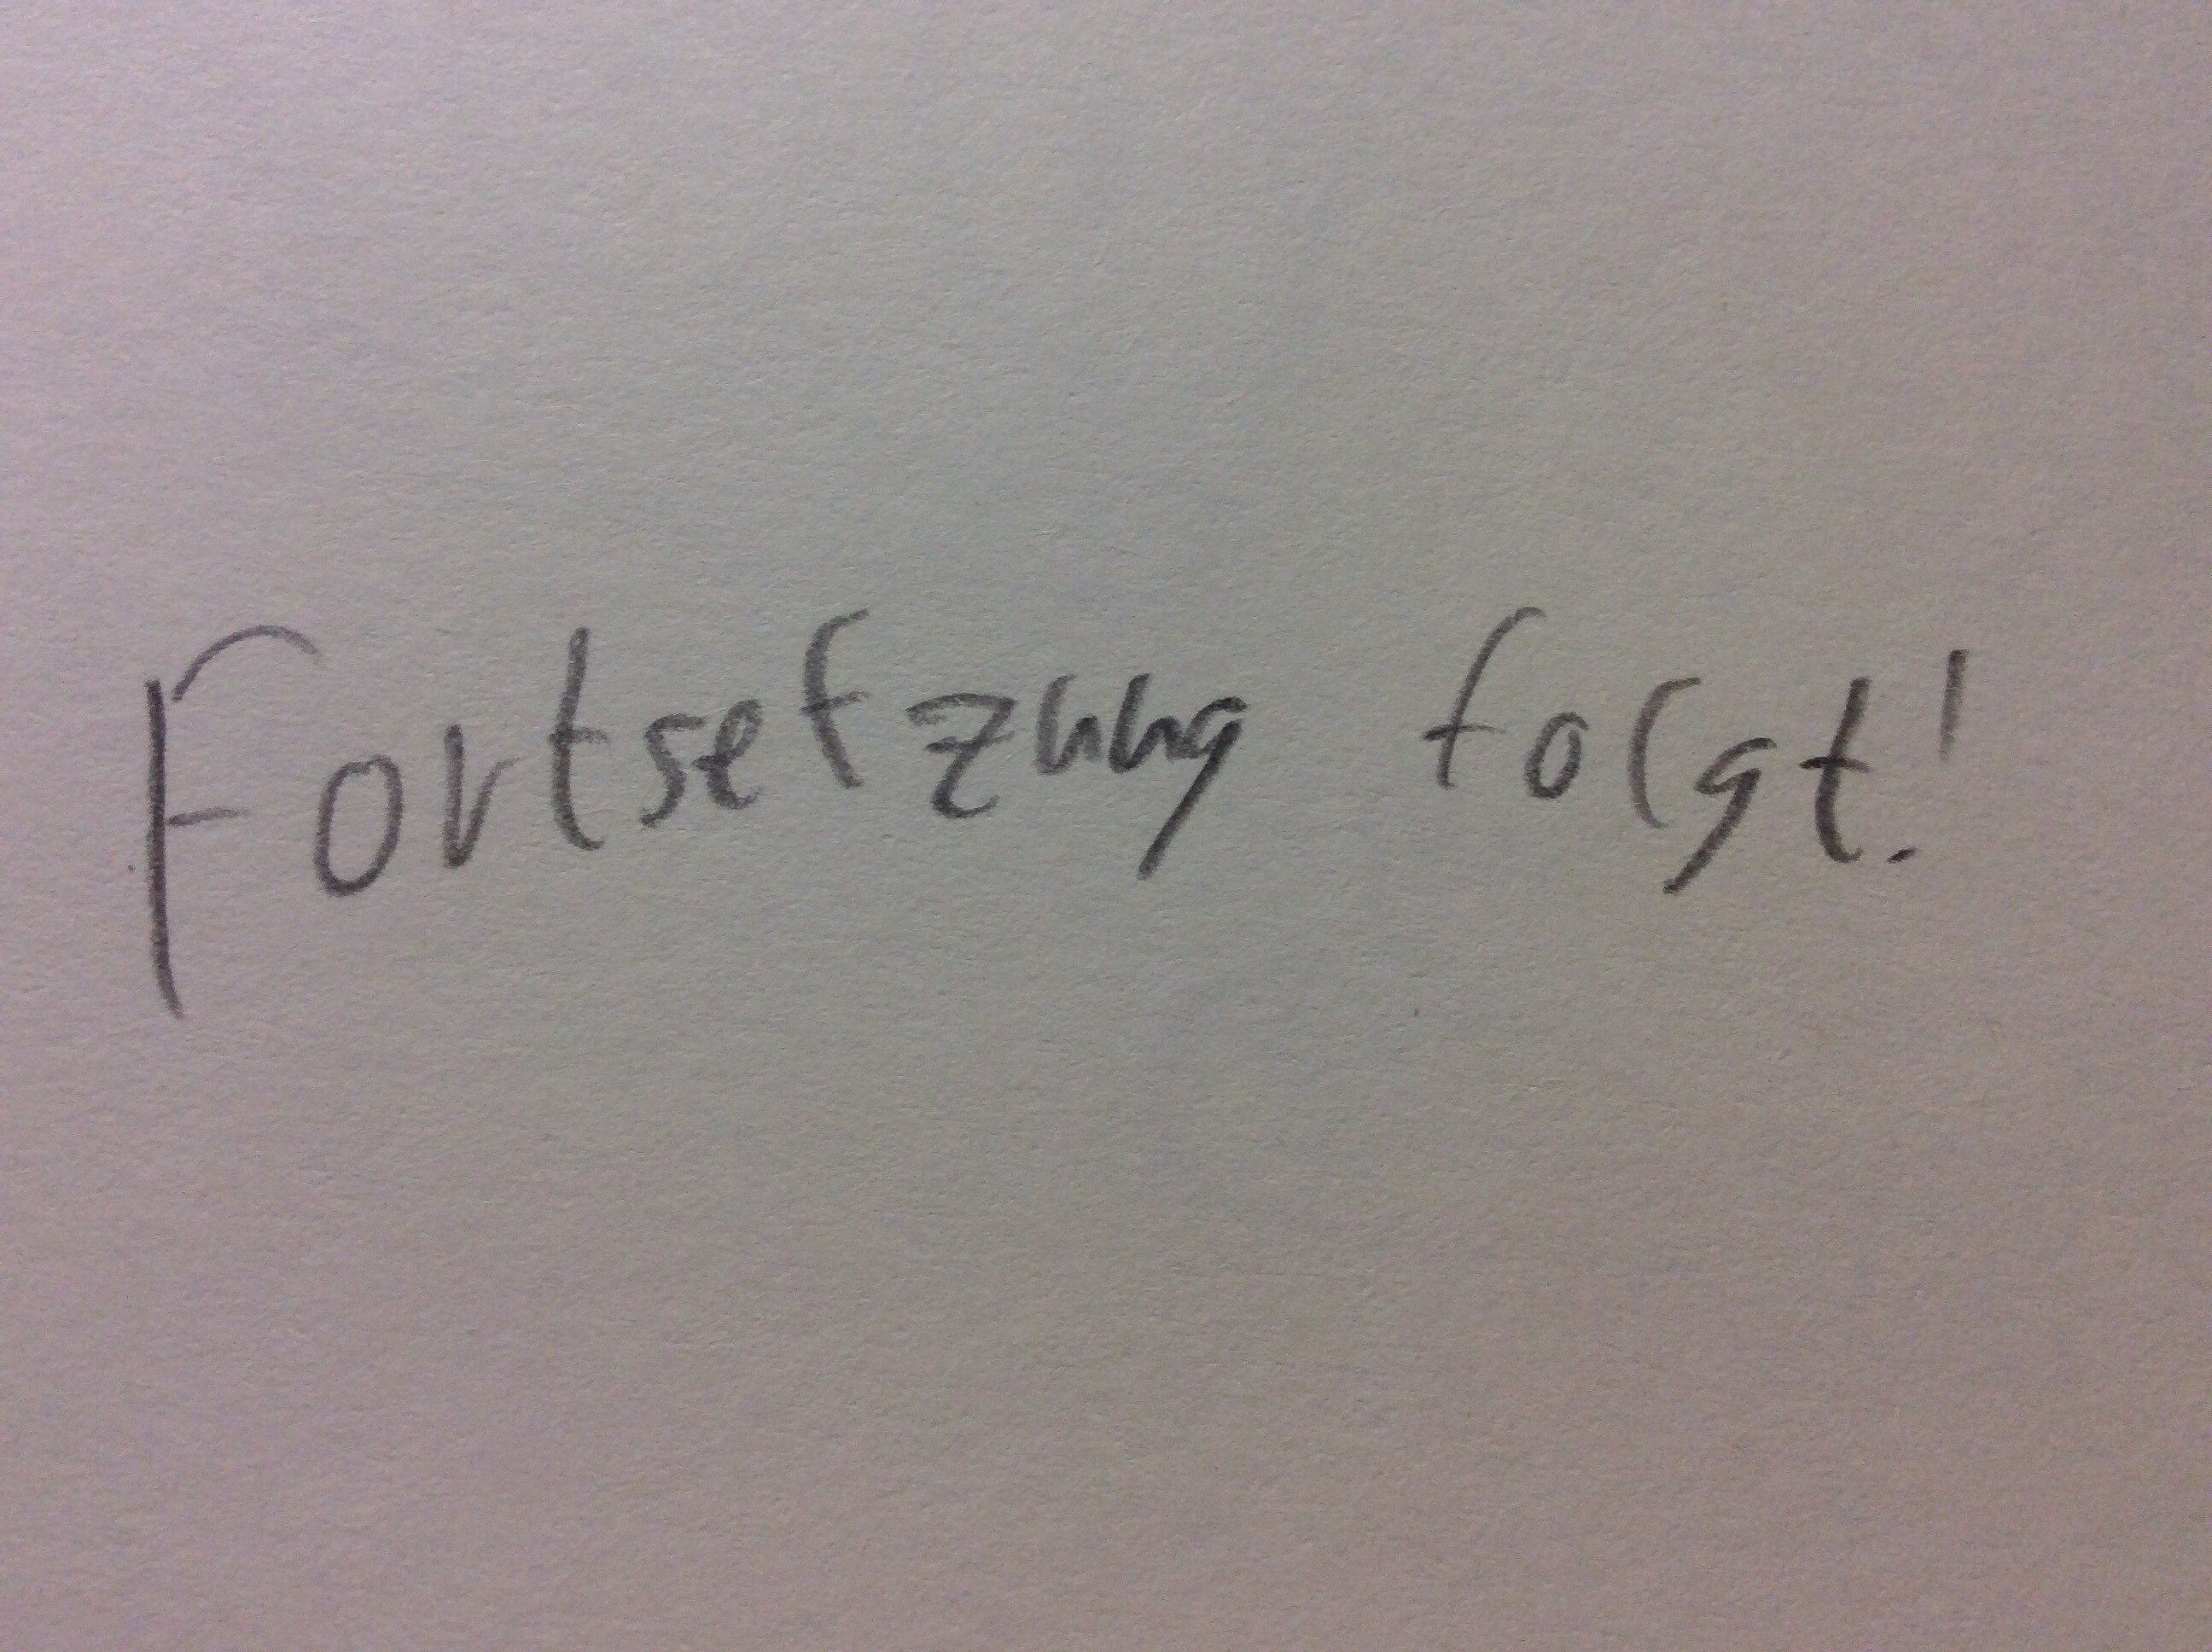 Fortsetzung folgt!